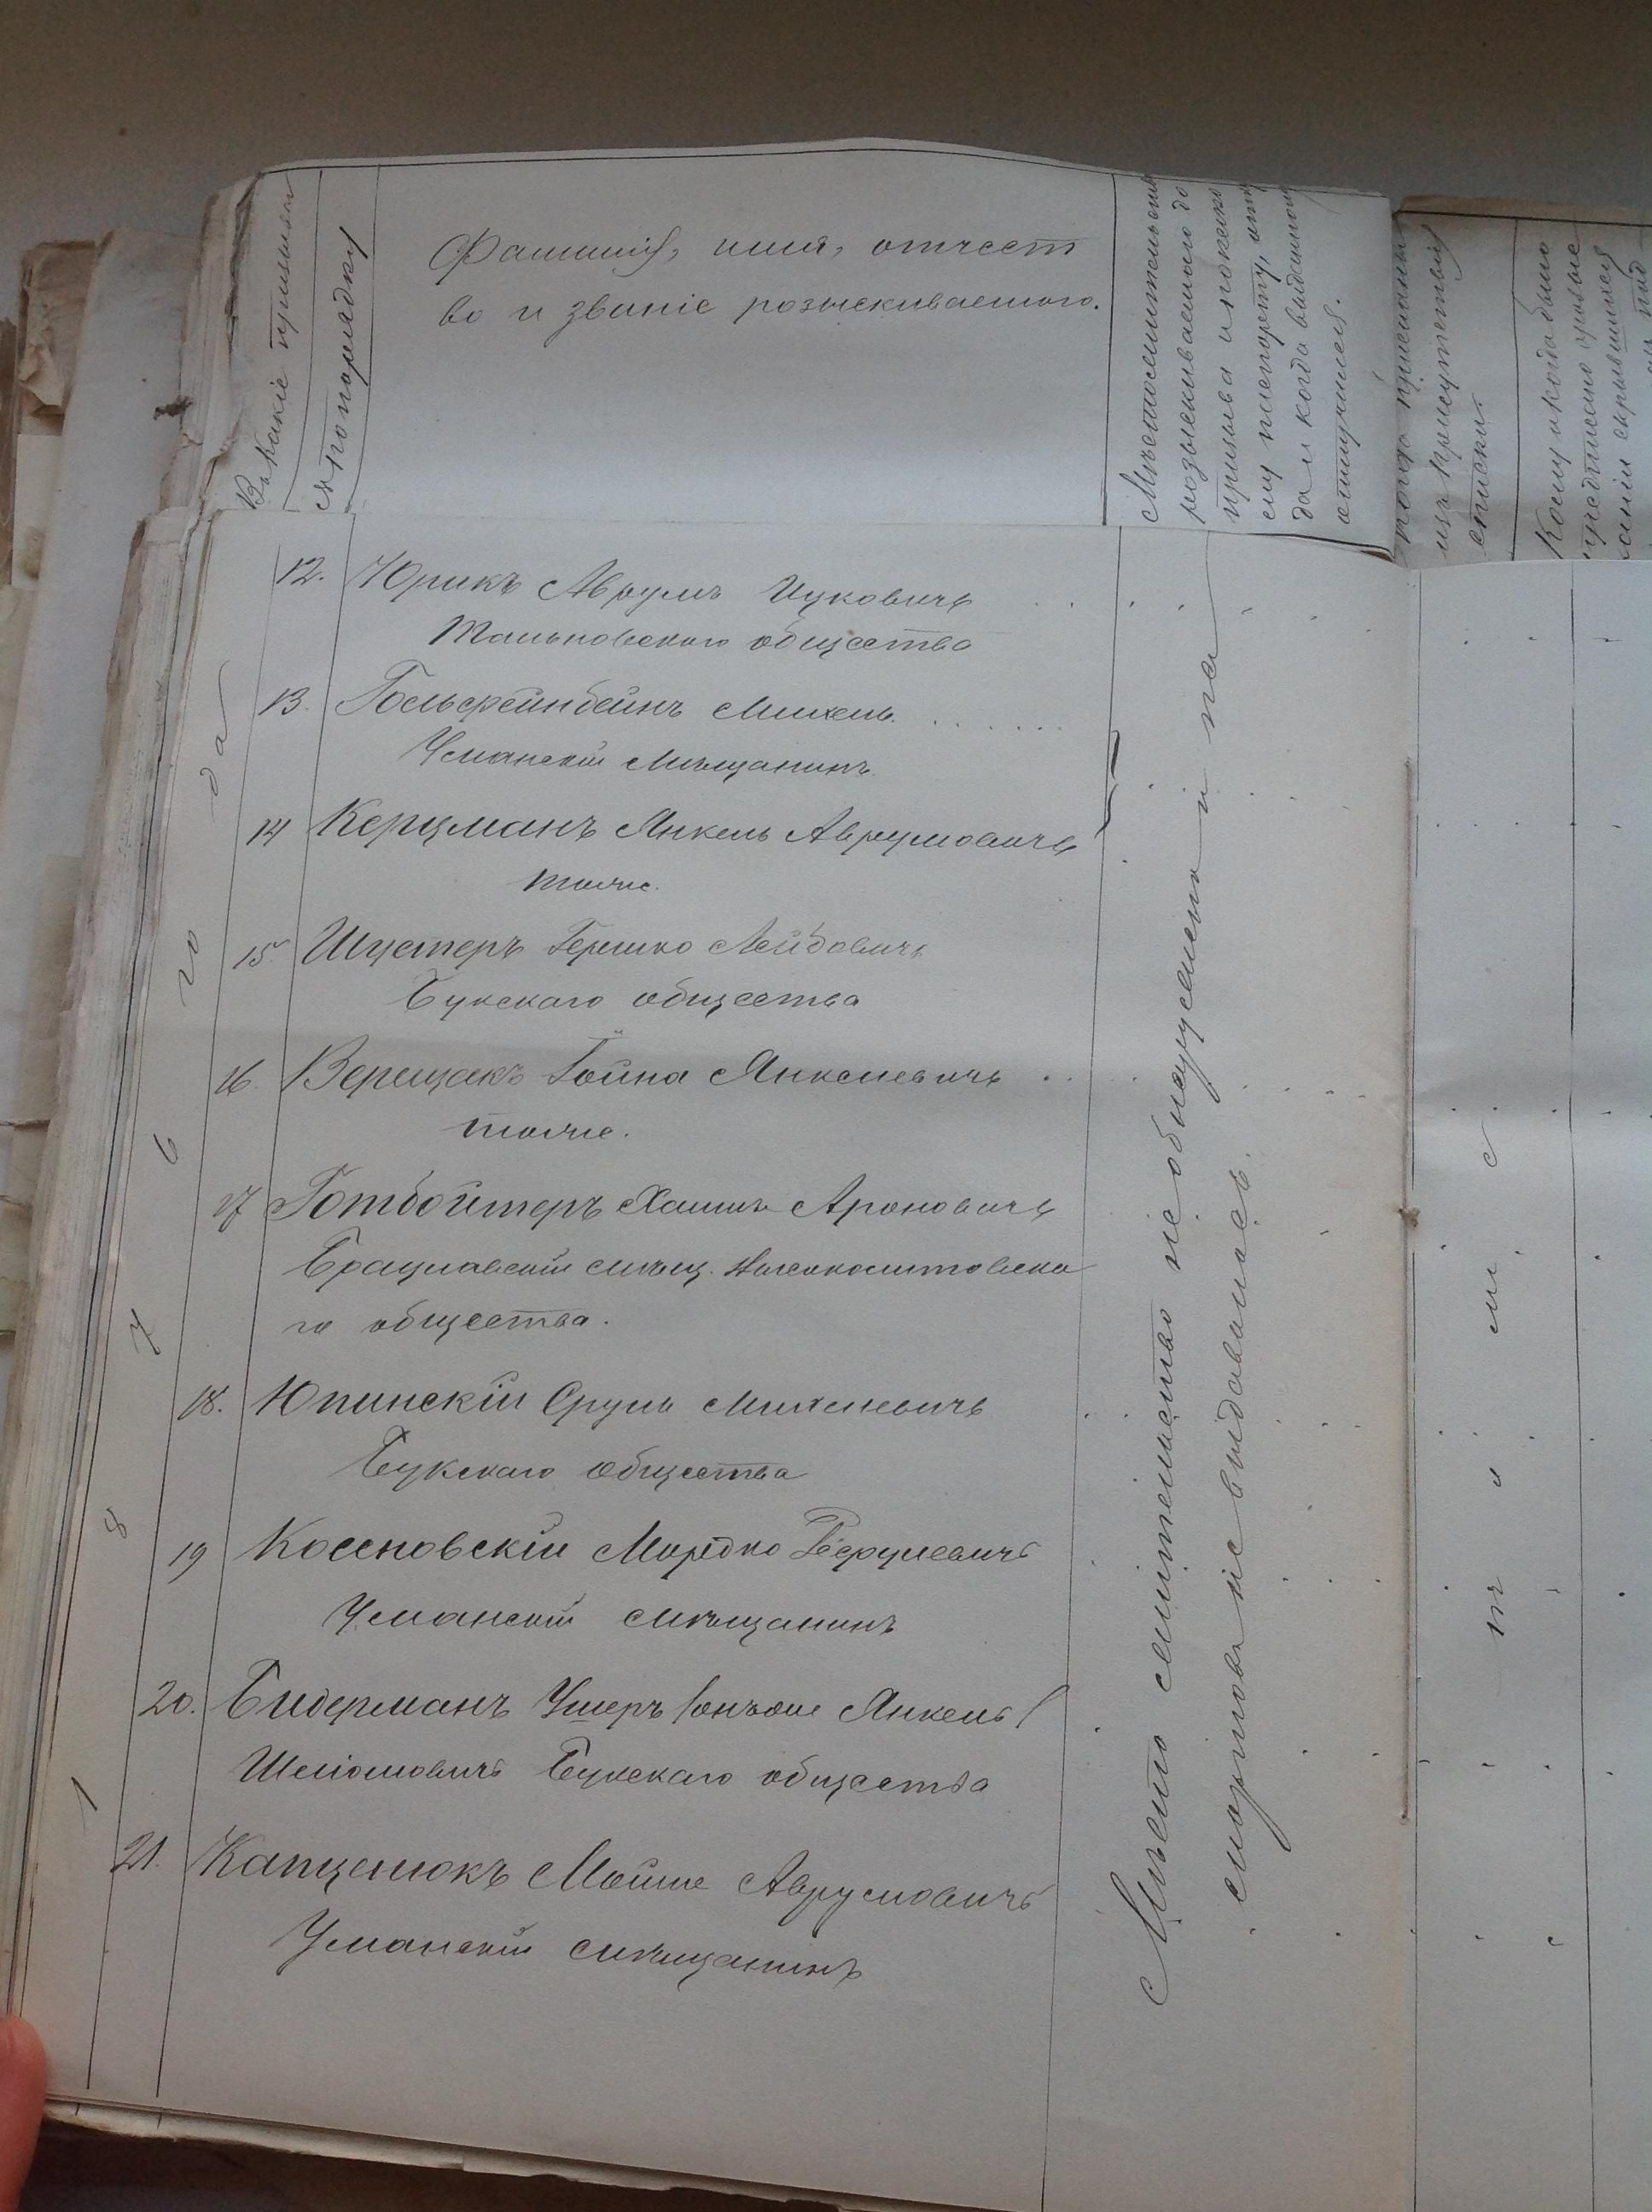 Въ какіе призывы
№ по порядку
Фамилія, имя, отчест
во и званіе розыскиваемаго.
Мѣстожительство
розыскиваемаго до
призыва и по како
му паспорту, отку
да и когда выданному
отлучился.
изъ присутствія
списки.
Кому и когда было
предписано
12. Юрикъ Аврумъ Ицковичъ
Тальновскаго общества
13. Гольфейнбейнъ Михель
Уманскій Мѣщанинъ
14 Керцманъ Янкель Аврумовичъ
тоже.
15. Шустеръ Гершко Лейбовичъ
Букскаго общества
16. Верещакъ Гойна Янкелевичъ
тоже.
17 Готбойтеръ Хаимъ Ароновичъ
Брацлавскій мѣщ.
го общества.
18. Юпинскій Сруль Михелевичъ
Букскаго общества
19 Коссновскій Мордко
Уманскій мѣщанинъ
20. Бидерманъ Ушеръ /онъ же Янкель/
Шліомовичъ Букскаго общества
21. Капцетюкъ Мойше Аврумовичъ
Уманскій мѣщанинъ
1 8 7 6 го да
Мѣсто жительство не обнаружено и па
спортовъ не выдавалось.
т ѣ м